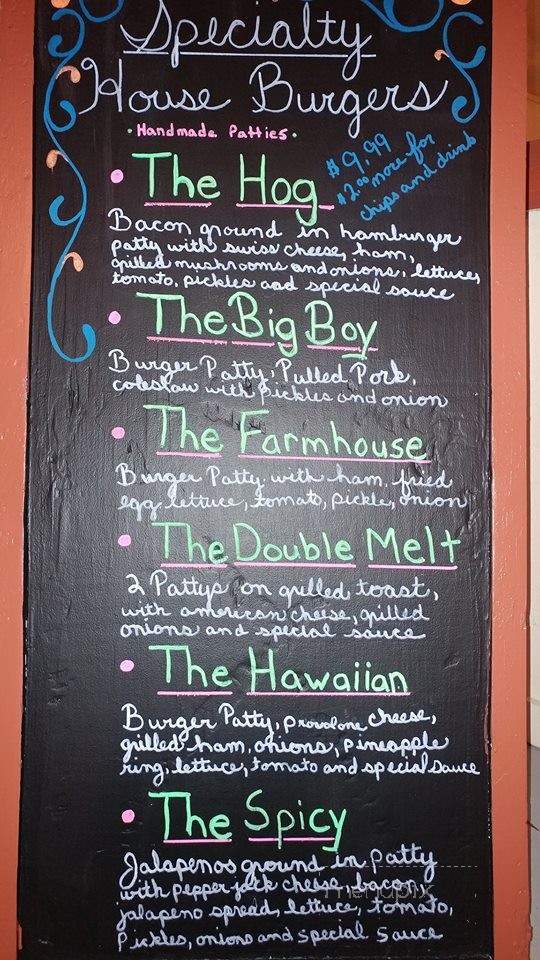 Specialty
House Burgers
• Handmade Patties •
$9.99
$2.00 more for
chips and drink
• The Hog
Bacon ground in hamburger
patty with swiss cheese, ham,
grilled mushrooms and onions, lettuce,
tomato, pickles and special sauce
• The Big Boy
Burger Patty, Pulled Pork,
coleslaw with pickles and onion
• The Farmhouse
Burger Patty with ham, fried
egg, lettuce, tomato, pickle, onion
• The Double Melt
2 Pattys on grilled toast,
with american cheese, grilled
onions and special sauce
• The Hawaiian
Burger Patty, provolone cheese,
grilled ham, onions, pineapple
ring, lettuce, tomato and special sauce
• The Spicy
Jalapenos ground in patty
with pepper jack cheese, bacon,
jalapeno spread, lettuce, tomato,
Pickles, onions and special sauce